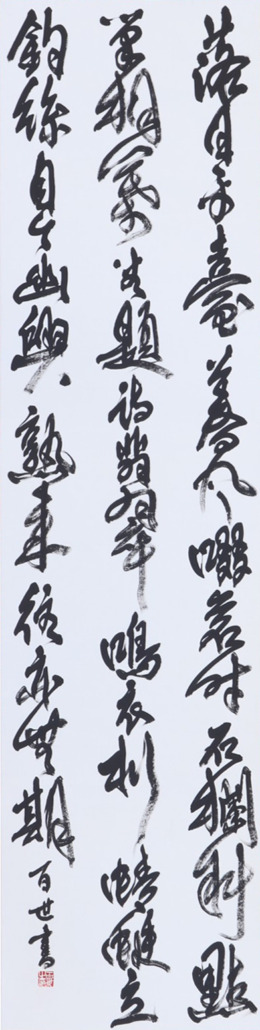 落日平臺上春風啜茗時石欄斜點
筆桐葉坐題詩翡翠鳴衣桁蜻蜓立
釣絲自今幽興熟來往亦無期
百世書